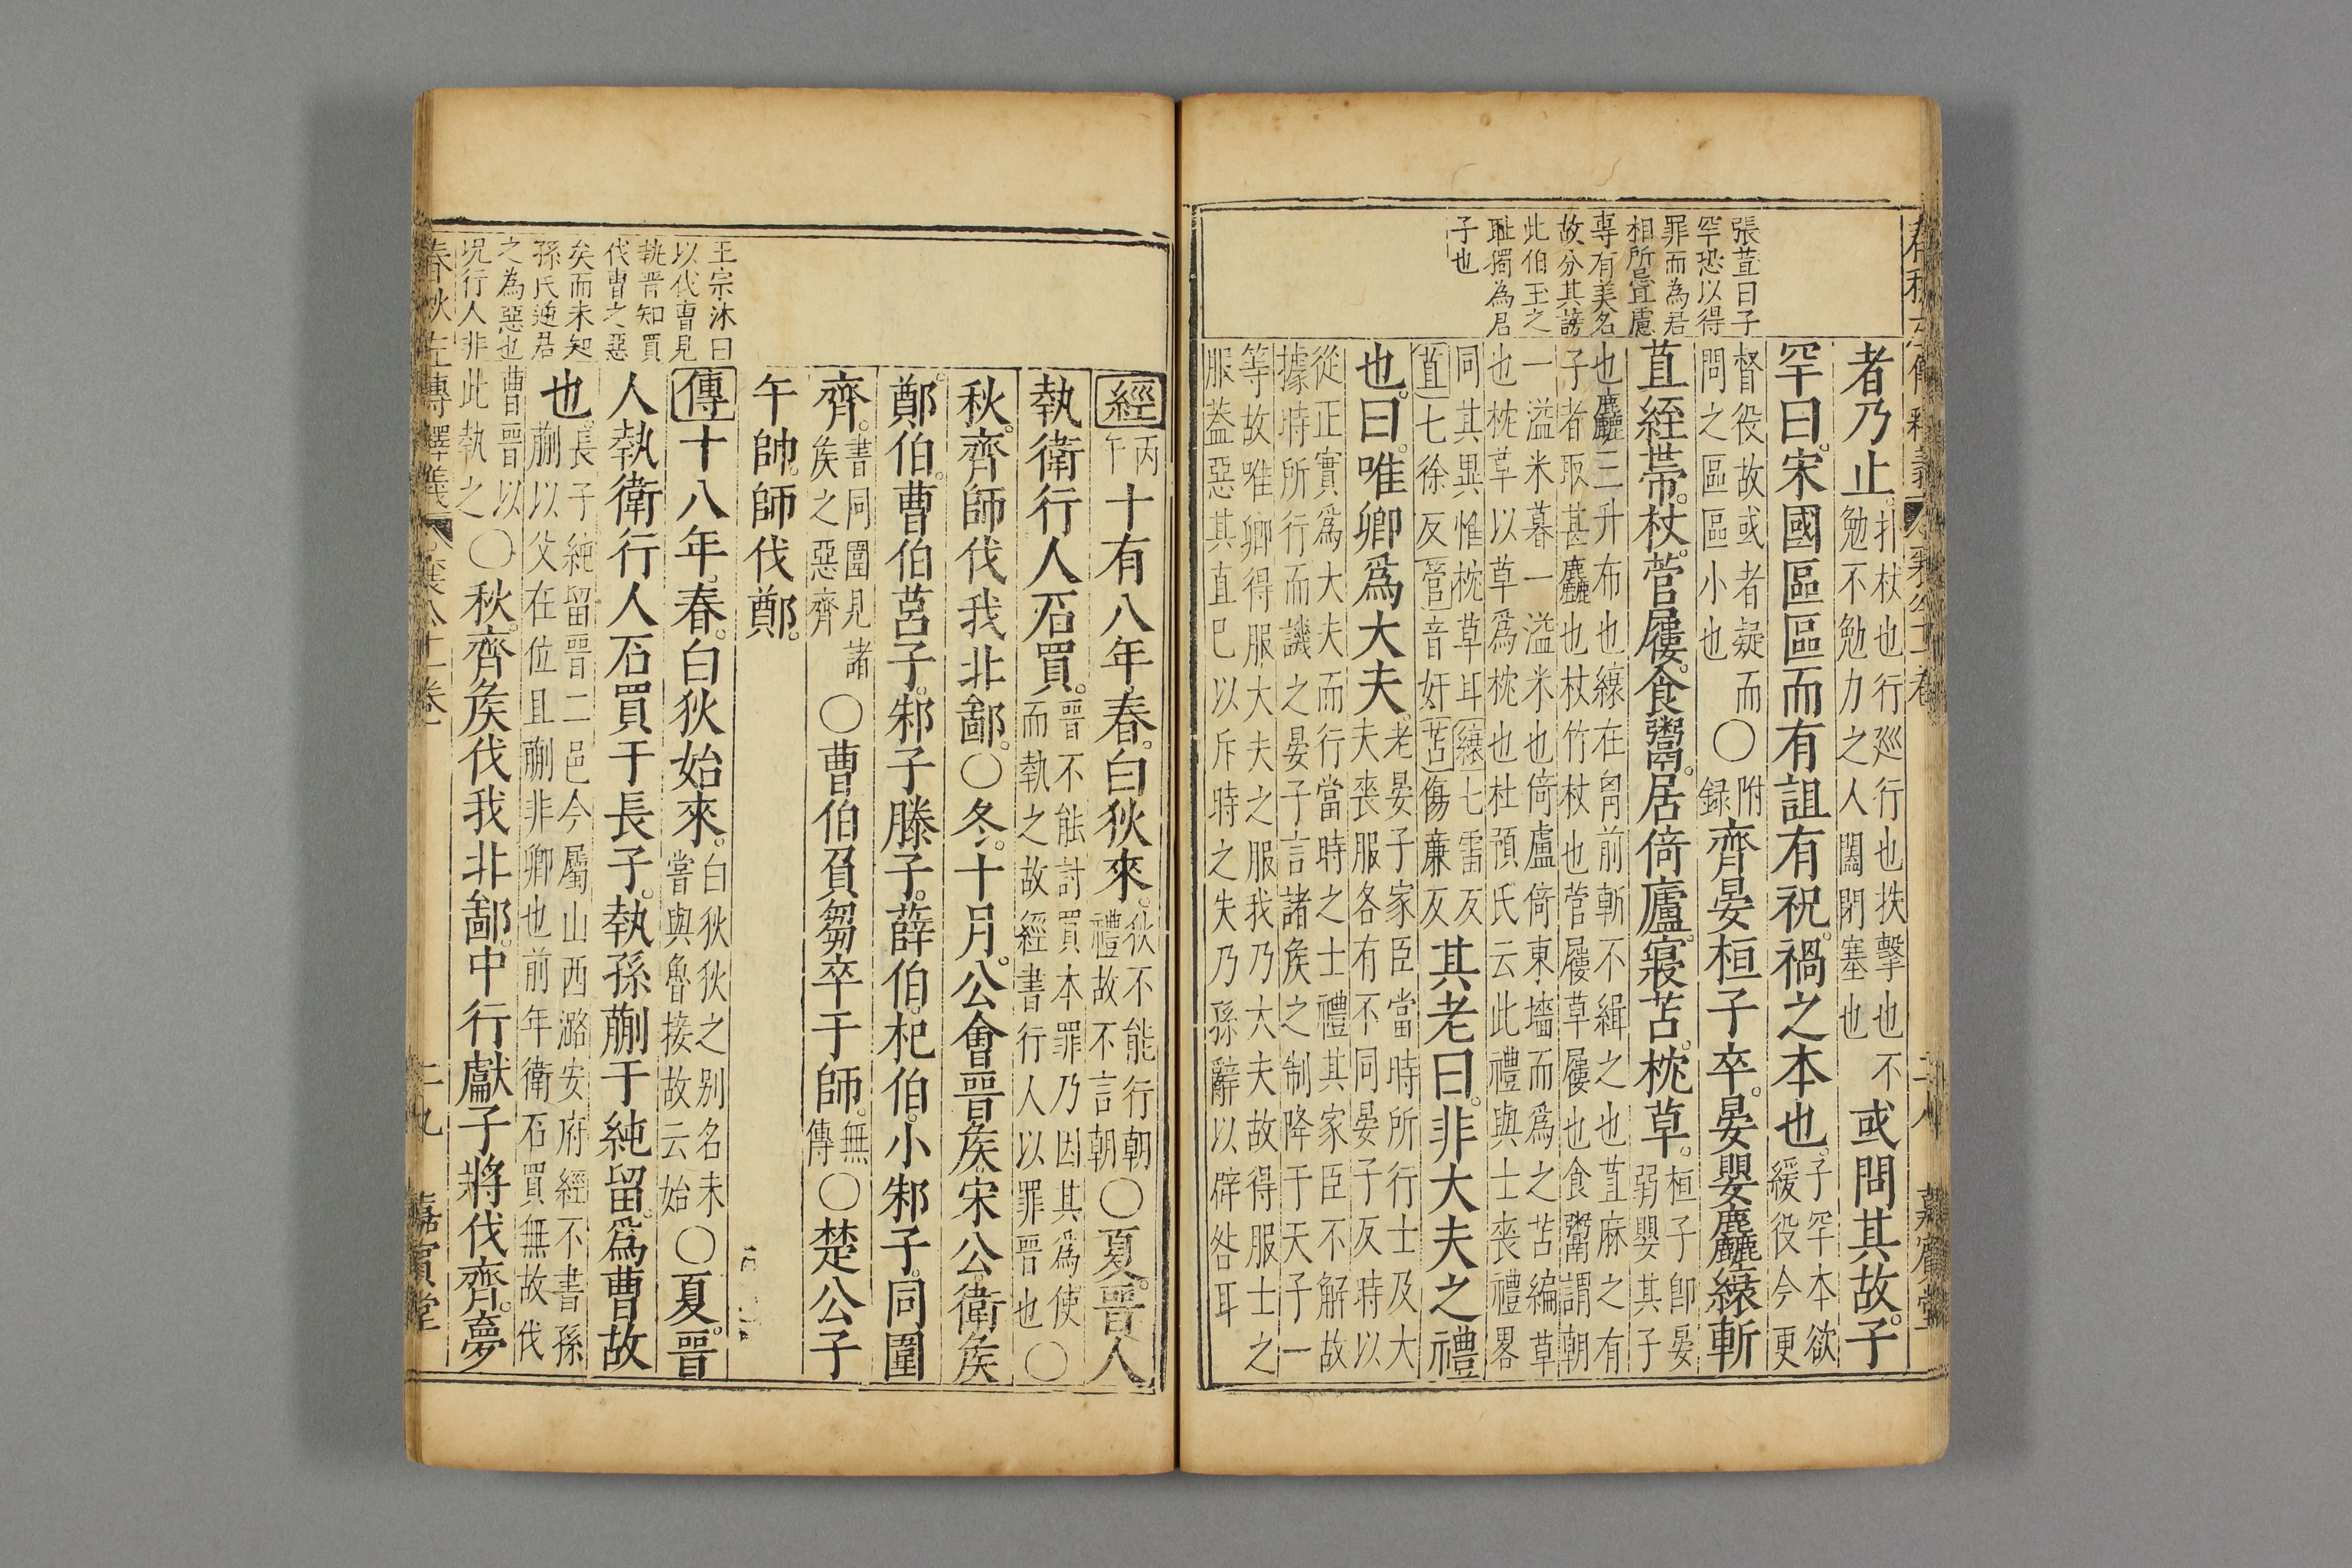 張萱曰子
罕恐以得
罪而為君
相所忌宜慮
專有美名
故分其謗
此伯玉之
恥獨為君
子也
者乃止。扑杖也行廵行也抶擊也不勉不勉力之人闔閉塞也或問其故。子
罕曰。宋國區區而有詛有祝。禍之本也。子罕本欲緩役今更
督役故或者疑而問之區區小也〇附録齊晏桓子卒。晏嬰麤縗斬
苴絰帶。杖。菅屨。食鬻。居倚廬。寢苫。枕草。桓子即晏弱嬰其子
也麤三升布也縗在胷前斬不緝之也苴麻之有子者取甚麤也杖竹杖也菅屨草屨也食鬻謂朝
一溢米暮一溢米也倚廬倚東墻而爲之苫編草也枕草以草爲枕也杜預氏云此禮與士喪禮畧
同其異惟枕草耳縗七雷反苴七徐反菅音奸苫傷廉反其老曰。非大夫之禮
也。曰。唯卿爲大夫。老晏子家臣當時所行士及大夫喪服各有不同晏子反時以
從正實爲大夫而行當時之士禮其家臣不解故據時所行而譏之晏子言諸矦之制降于天子一
等故唯卿得服大夫之服我乃大夫故得服士之服葢惡其直巳以斥時之失乃孫辭以辟咎耳
經丙午十有八年。春。白狄來。狄不能行朝禮故不言朝〇夏。晉人
執衛行人石買。晉不能討買本罪乃因其爲使而執之故經書行人以罪晉也〇
秋。齊師伐我北鄙。〇冬。十月。公會晉矦宋公。衛矦
鄭伯。曹伯莒子。邾子滕子。薛伯。杞伯。小邾子。同圍
齊。書同圍見諸矦之惡齊〇曹伯負芻卒于師。無傳〇楚公子
午帥。師伐鄭。
王宗沐曰
以代曹見
執晉知買
代曹之惡
矣而未知
孫氏逐君
之為惡也
況行人非
傳十八年。春。白狄始來。白狄狄之别名未嘗與魯接故云始〇夏。晉
人執衛行人石買于長子。執孫蒯于純留。爲曹故
也。長子純留晉二邑今屬山西潞安府經不書孫蒯以父在位且蒯非卿也前年衛石買無故伐
曹晉以此執之〇秋。齊矦伐我北鄙。中行獻子將伐齊。夢